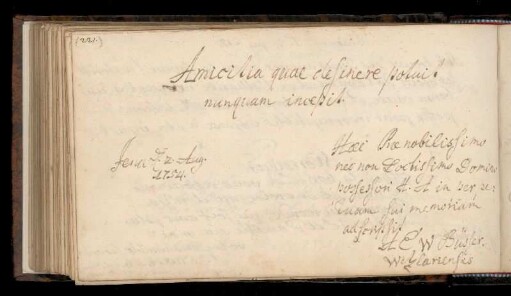 (221.)
Amicitia quae desinere potuit
nunquam incepit.
Jena d. 2 Aug.
1754.
Haec Prænobilissimo
nec non Doctissimo Domino
possessori in per
suam sui memoriam
adscripsit
W Büster.
Wetzlariensis